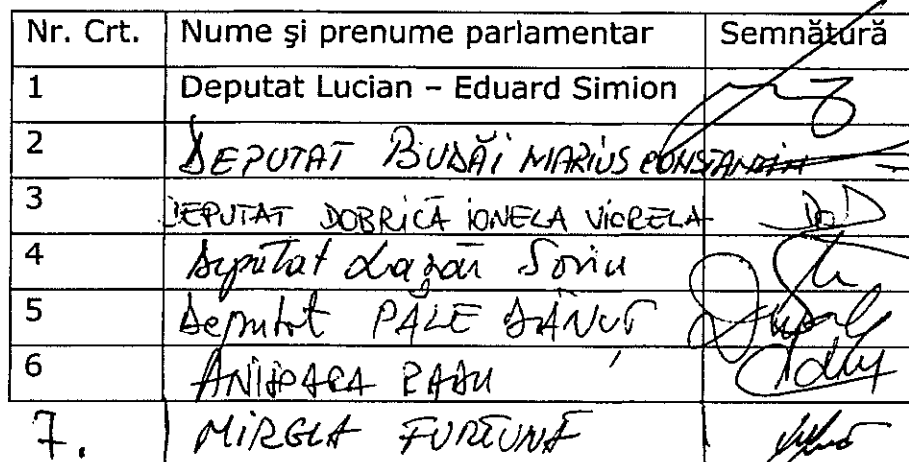 Nr. Crt. Nume şi prenume parlamentar Semnătură
1 Deputat Lucian – Eduard Simion
2 DEPUTAT BUDĂi MARIUS CONSTANTIN
3 DEPUTAT DOBRICĂ iONELA ViORELA
4 Deputat Lazăr Sorin
5 Deputat PALE DĂNUȚ
6 ANIȘOARA RADU
7. MiRELA FURTUNĂ